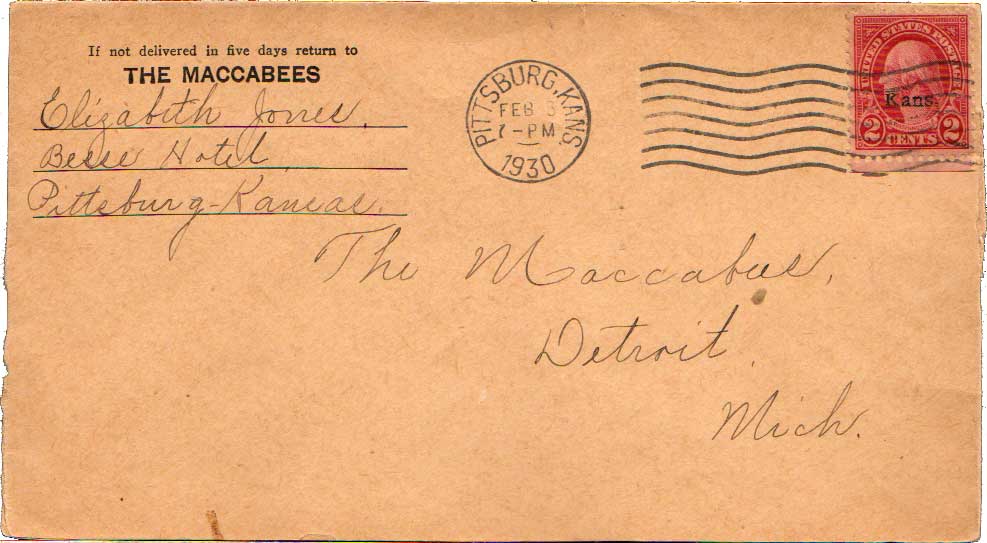 If not delivered in five days return to
THE MACCABEES
Elizabeth Jones.
Besse Hotel
Pittsburg-Kansas.
PITTSBURG, KANS.
FEB 3
7-PM
1930
UNITED STATES POSTAGE
Kans.
2 CENTS 2
The Maccabees,
Detroit,
Mich.